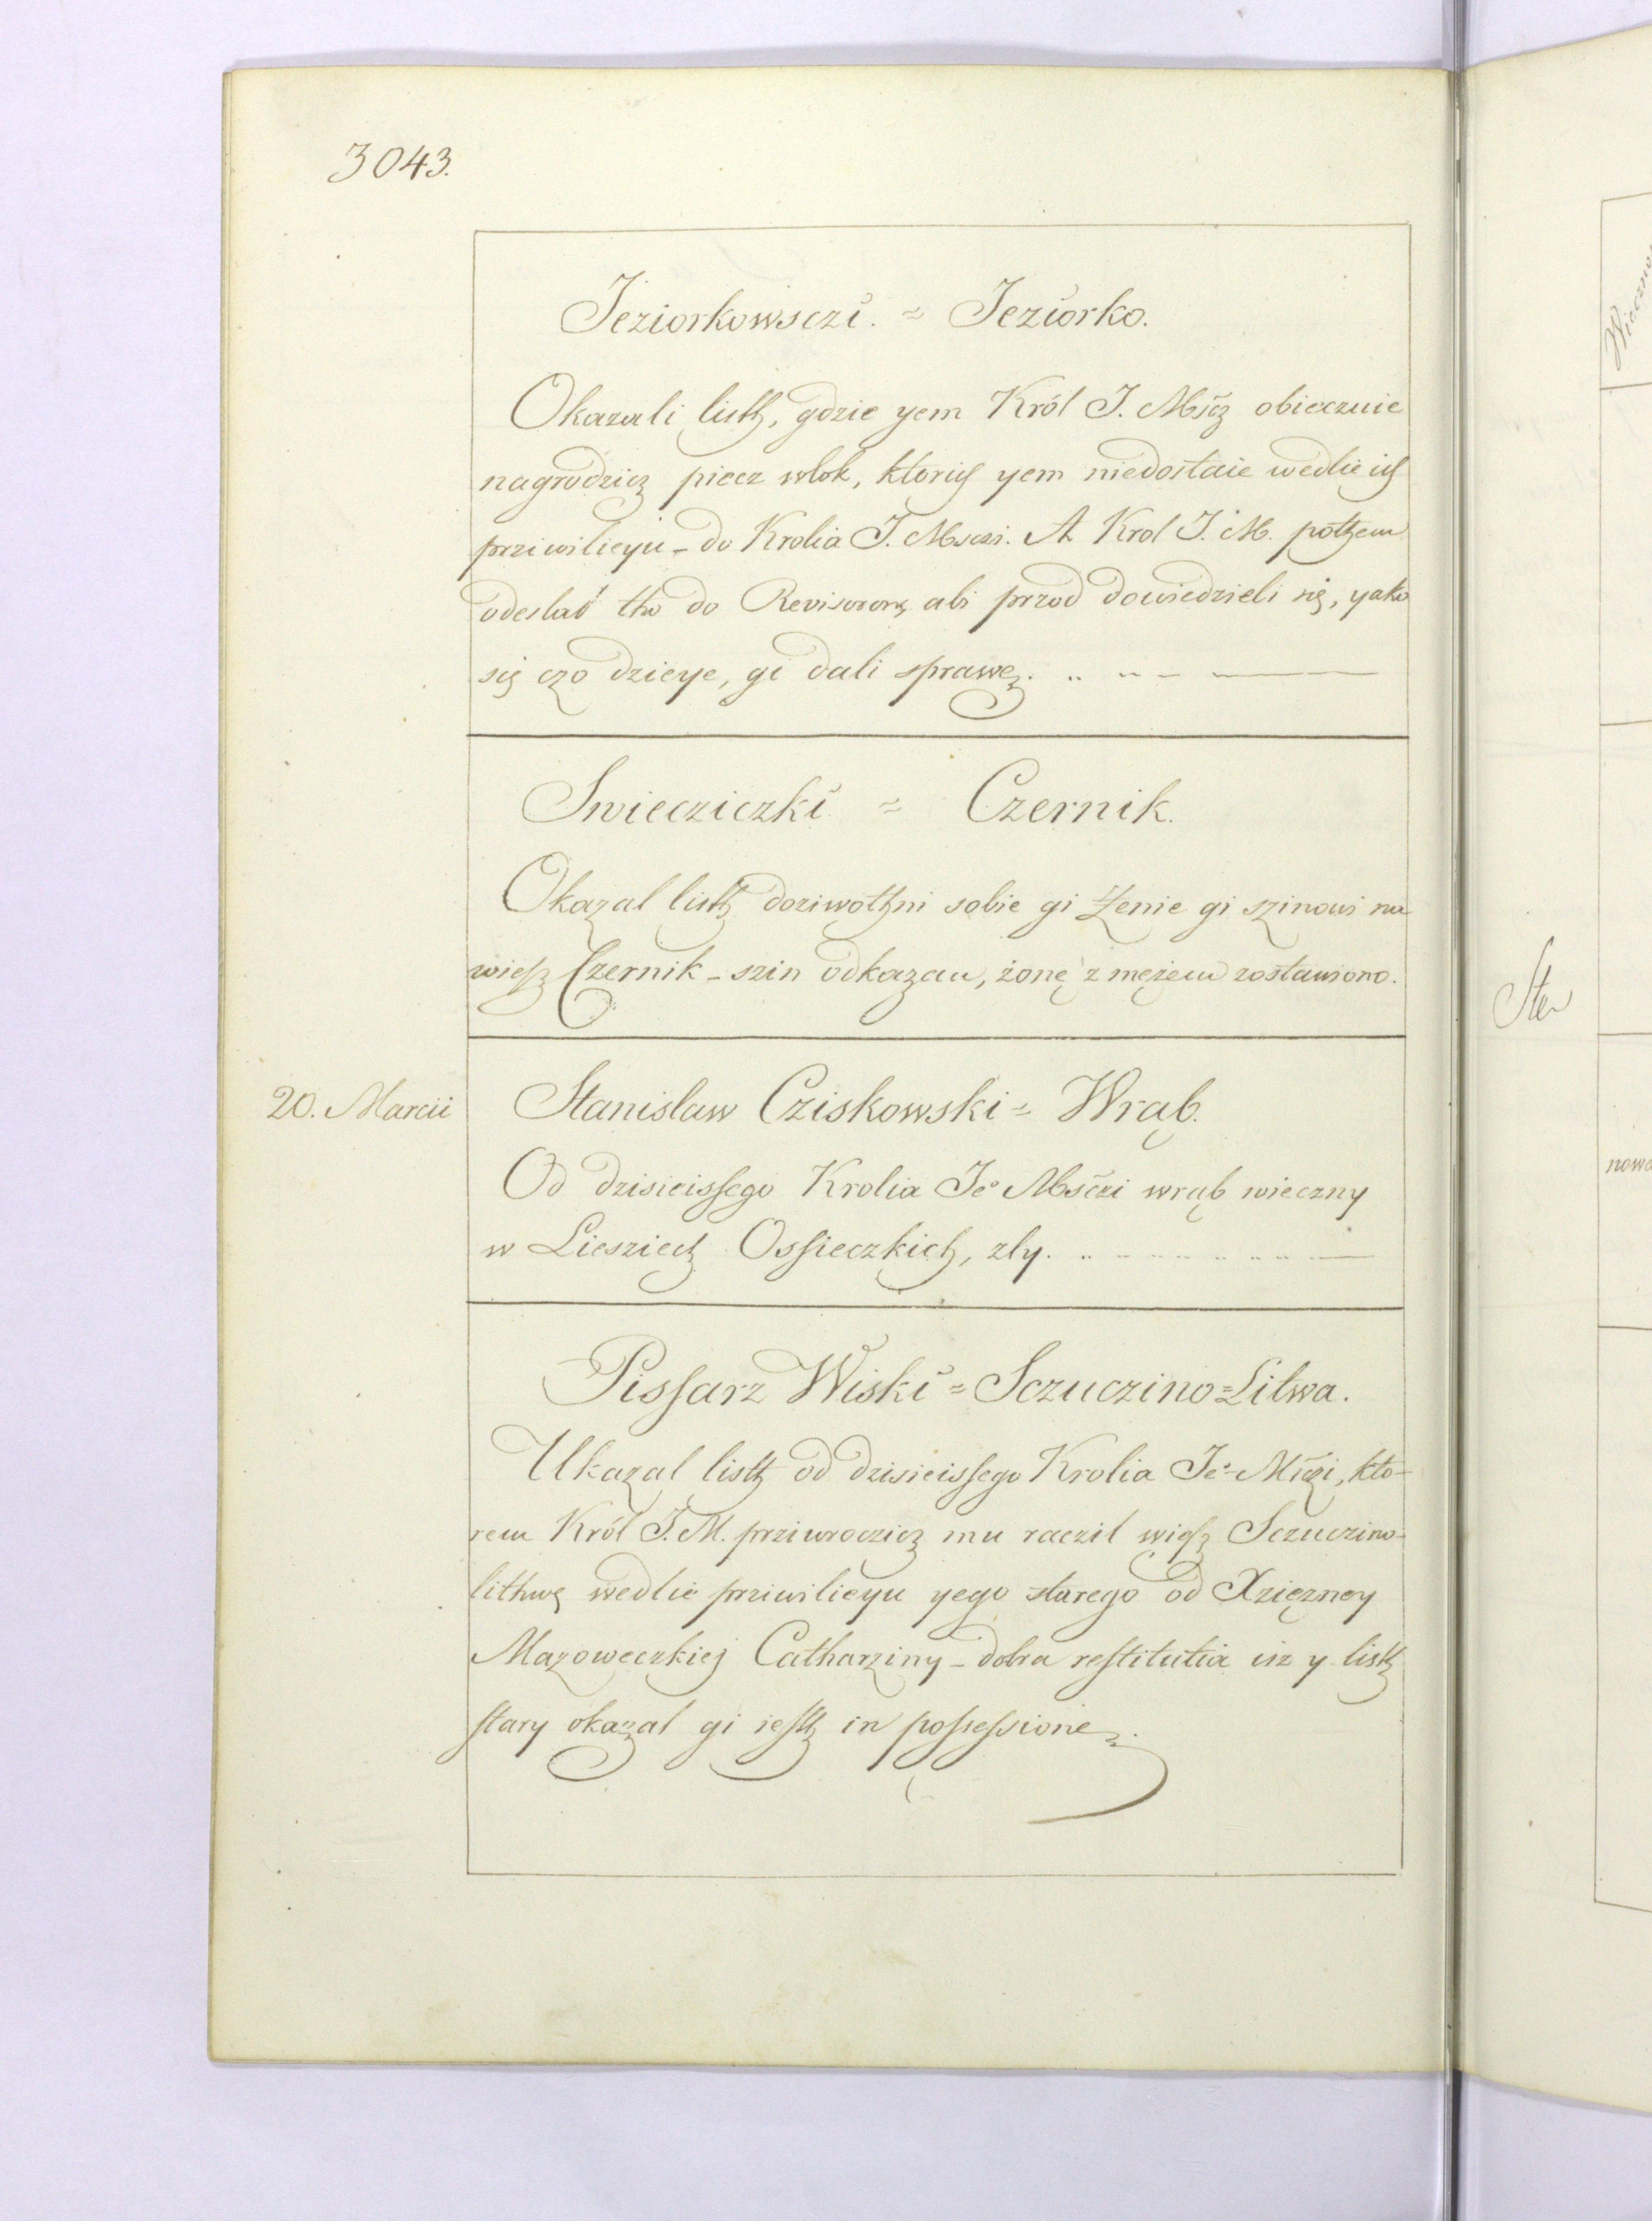 3043.
Jeziorkowsczi. = Jeziorko.
Okazali listh, gdzie yem Król J. Mścz obieczuie
nagrodzicz piecz wlok, ktorich yem niedostaie wedlie ich
prziwilieyu - do Krolia J. Msczi. A Krol J. M. pothem
odeslał tho do Revisorow, abi przod dowiedzieli się, yako
się czo dzieye, gi dali sprawę.
Swiecziczki = Czernik.
Okazal listh doziwothni sobie gi Żenie gi szinowi na
wiesz Czernik - szin odkazan, żonę z mężem zostawiono.
20. Marcii
Stanislaw Cziskowski = Wrąb.
Od dzisieissego Krolia Je° Msczi wrąb wieczny
w Liesziech Ossieczkich, zly.
Pissarz Wiski = Sczuczino = Litwa.
Ukazal listh od dzisieissego Krolia Je° Msczi, kto-
rem Król J. M. prziwroczicz mu raczil więsz Sczuczino-
lithwę wedlie prziwilieyu yego starego od Xziężney
Mazoweczkiej Catharziny - dobra restitutia isz y listh
stary okazal gi iesth in possessione.
nowo